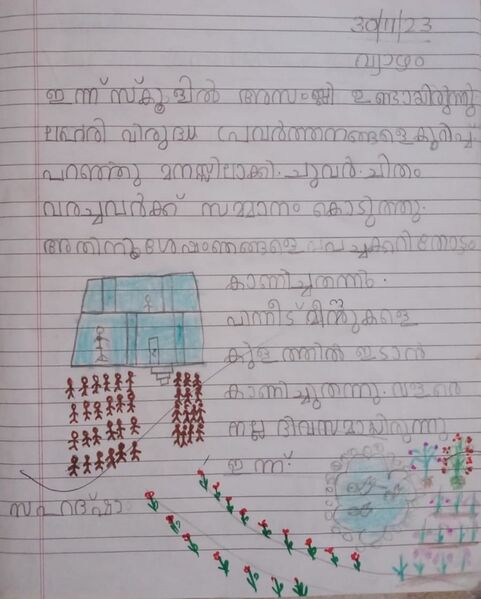 30/11/23
വ്യാഴം
ഇന്ന് സ്കൂളിൽ അസംബ്ലി ഉണ്ടായിരുന്നു
ലഹരി വിരുദ്ധ പ്രവർത്തനങ്ങളെകുറിച്ച്
പറഞ്ഞു മനസ്സിലാക്കി. ചുവർ ചിത്രം
വരച്ചവർക്ക് സമ്മാനം കൊടുത്തു.
അതിനുശേഷം ഞങ്ങളെ പച്ചക്കറിതോട്ടം
കാണിച്ചുതന്നു.
പിന്നീട് മീനുകളെ
കുളത്തിൽ ഇടാൻ
കാണിച്ചുതന്നു. വളരെ
നല്ല ദിവസമായിരുന്നു
ഇന്ന്.